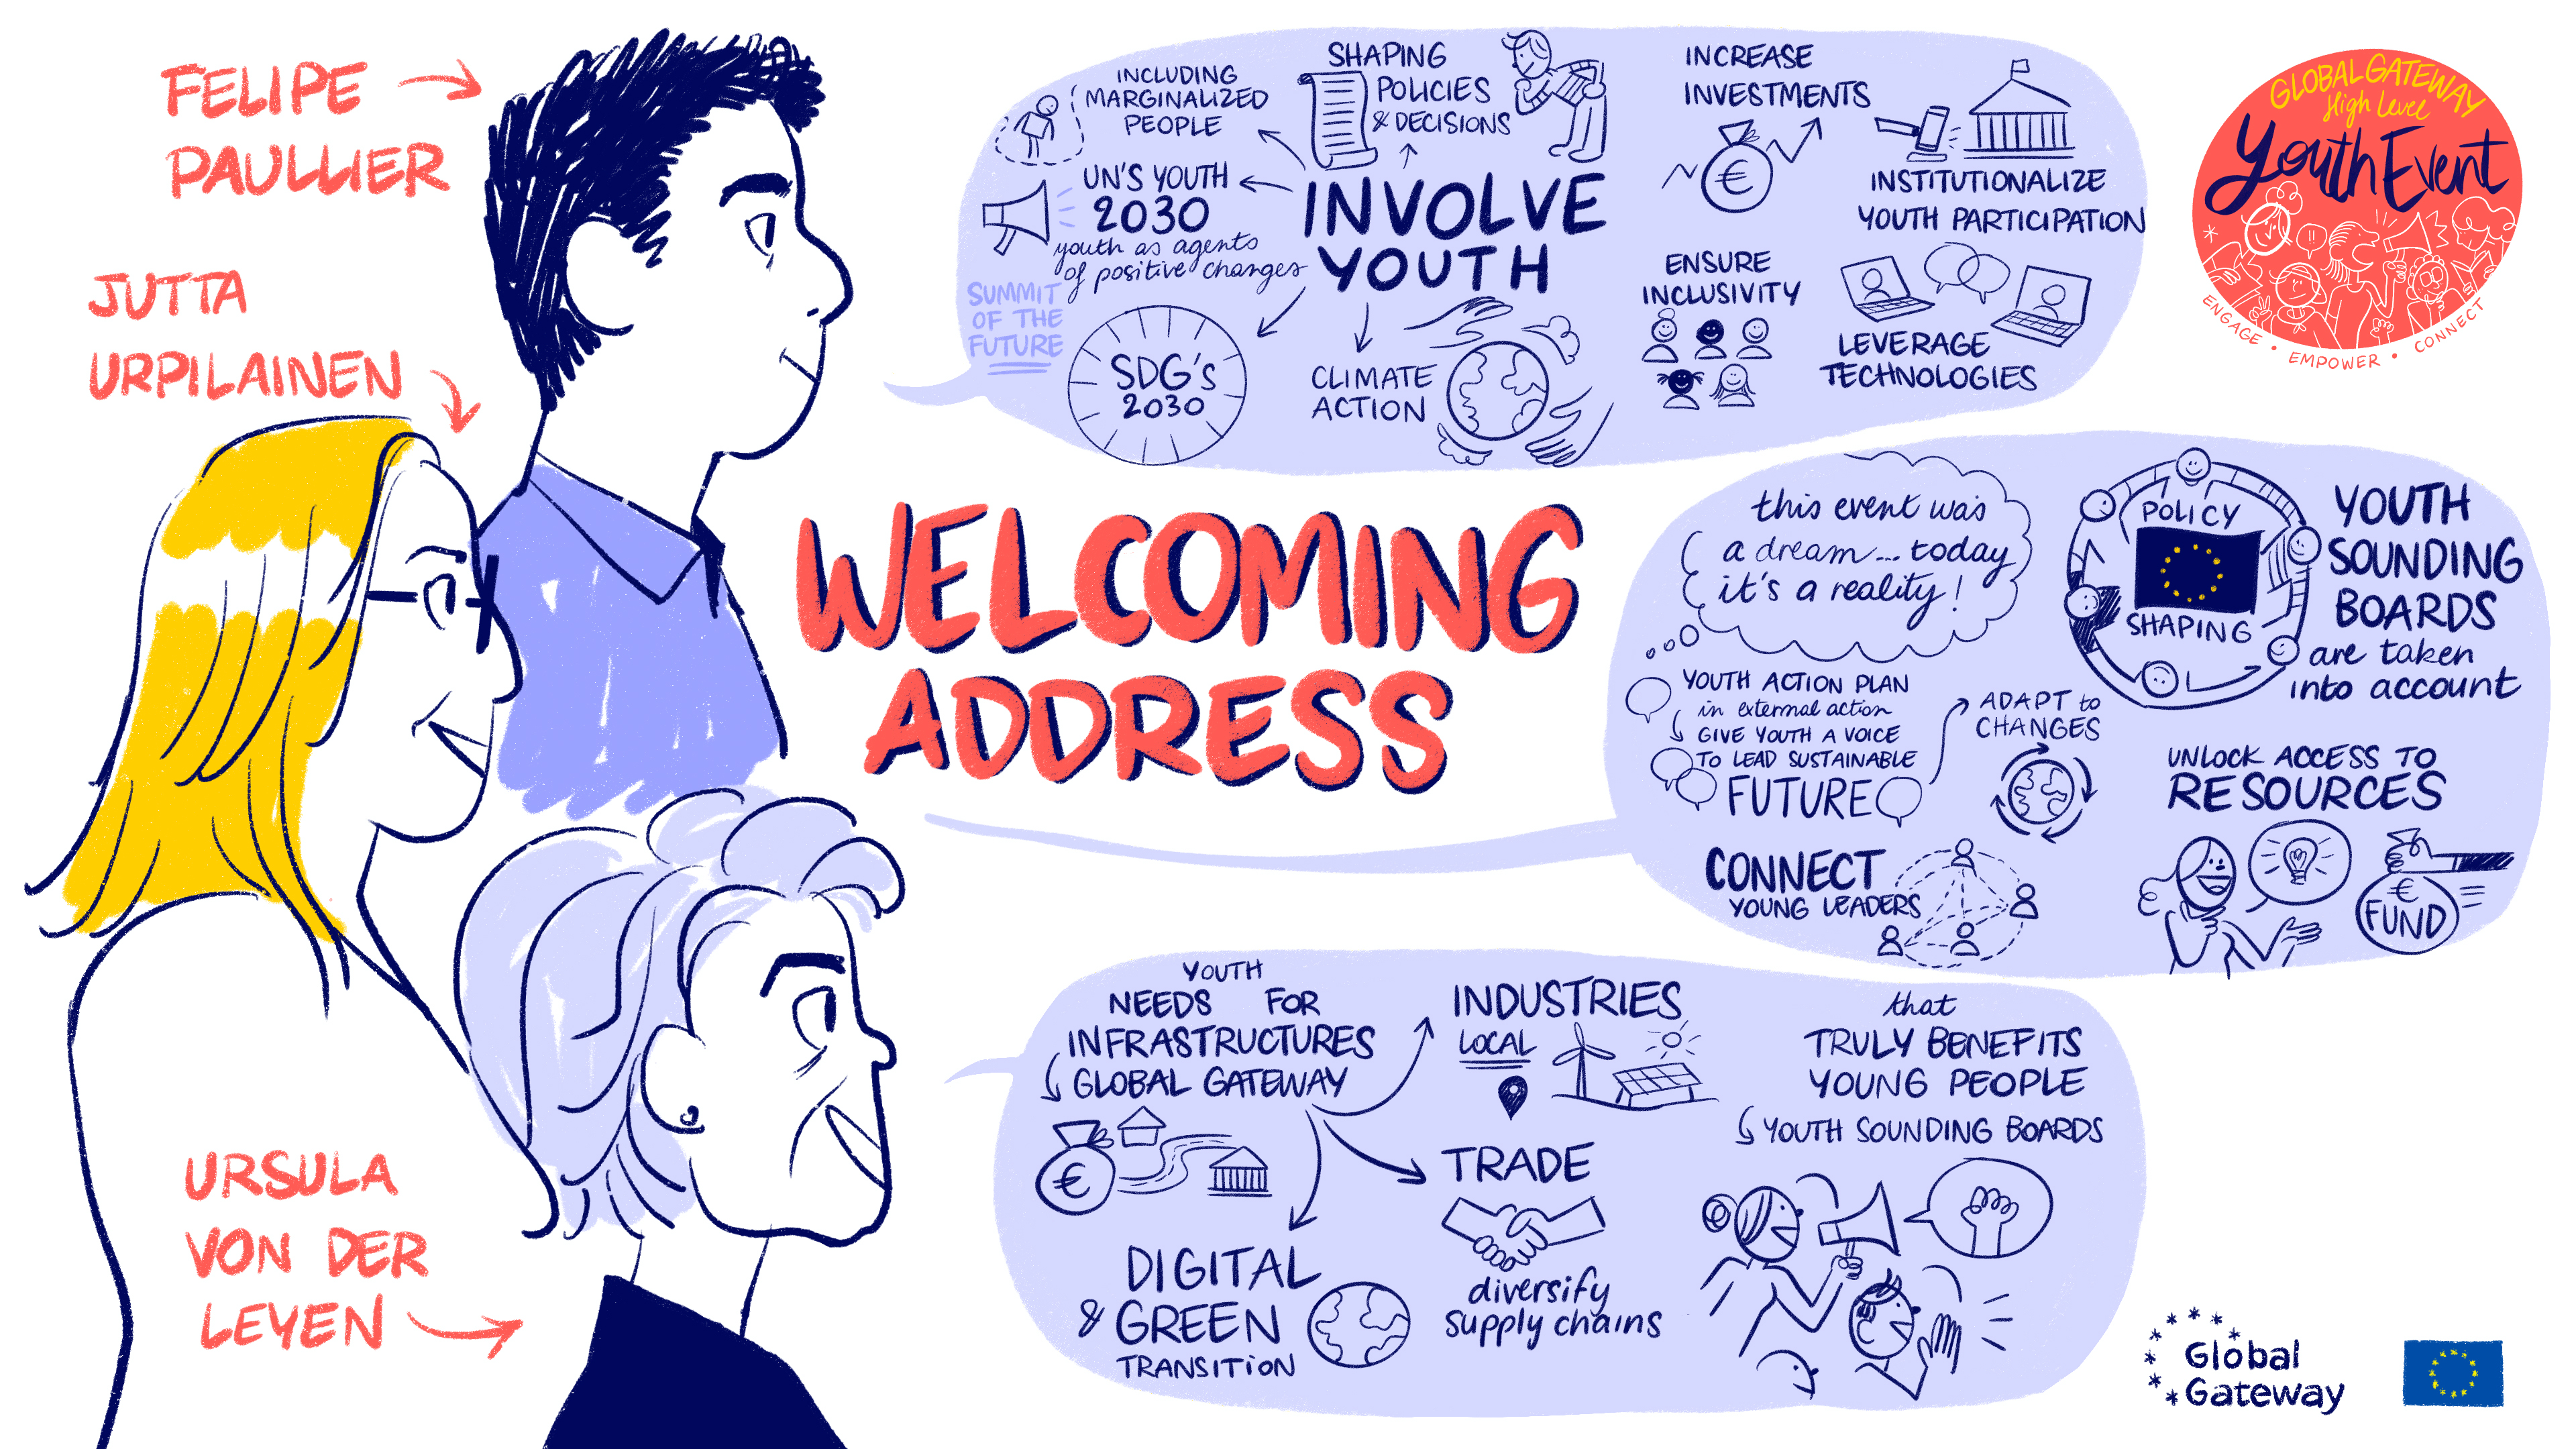 FELIPE
PAULLIER
JUTTA
URPILAINEN
URSULA
VON DER
LEYEN
WELCOMING
ADDRESS
INCLUDING
MARGINALIZED
PEOPLE
SHAPING
POLICIES
& DECISIONS
UN'S YOUTH
2030
youth as agents
of positive changes
SUMMIT
OF THE
FUTURE
INVOLVE
YOUTH
SDG's
2030
CLIMATE
ACTION
INCREASE
INVESTMENTS
€
INSTITUTIONALIZE
YOUTH PARTICIPATION
ENSURE
INCLUSIVITY
LEVERAGE
TECHNOLOGIES
GLOBAL GATEWAY
High Level
Youth Event
ENGAGE • EMPOWER • CONNECT
this event was
a dream... today
it's a reality!
POLICY
SHAPING
YOUTH
SOUNDING
BOARDS
are taken
into account
YOUTH ACTION PLAN
in external action
GIVE YOUTH A VOICE
TO LEAD SUSTAINABLE
FUTURE
ADAPT to
CHANGES
UNLOCK ACCESS TO
RESOURCES
€
FUND
CONNECT
YOUNG LEADERS
YOUTH
NEEDS FOR
INFRASTRUCTURES
GLOBAL GATEWAY
€
INDUSTRIES
LOCAL
TRADE
diversify
supply chains
DIGITAL
& GREEN
TRANSITION
that
TRULY BENEFITS
YOUNG PEOPLE
YOUTH SOUNDING BOARDS
Global
Gateway